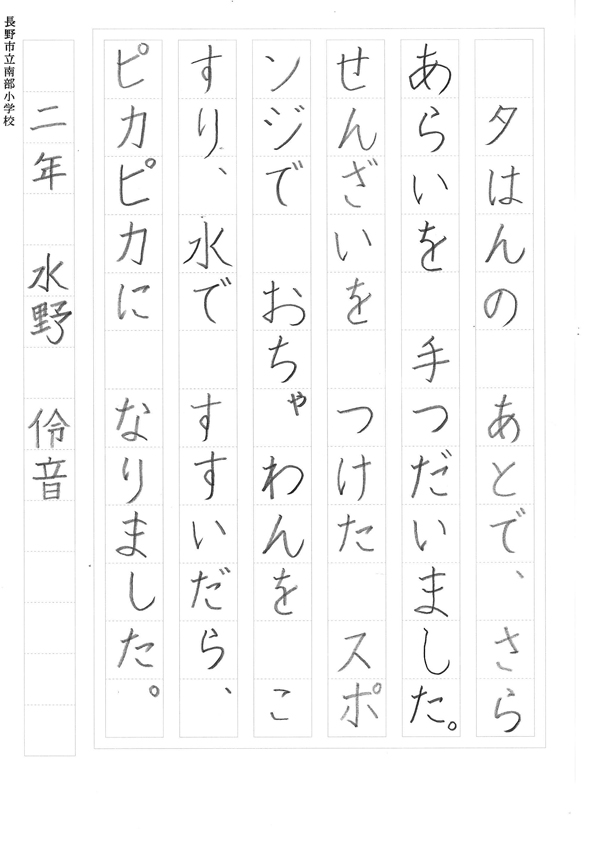 夕はんの　あとで、さら
あらいを　手つだいました。
せんざいを　つけた　スポ
ンジで　おちゃわんを　こ
すり、水で　すすいだら、
ピカピカに　なりました。
二年　水野　伶音
長野市立南部小学校